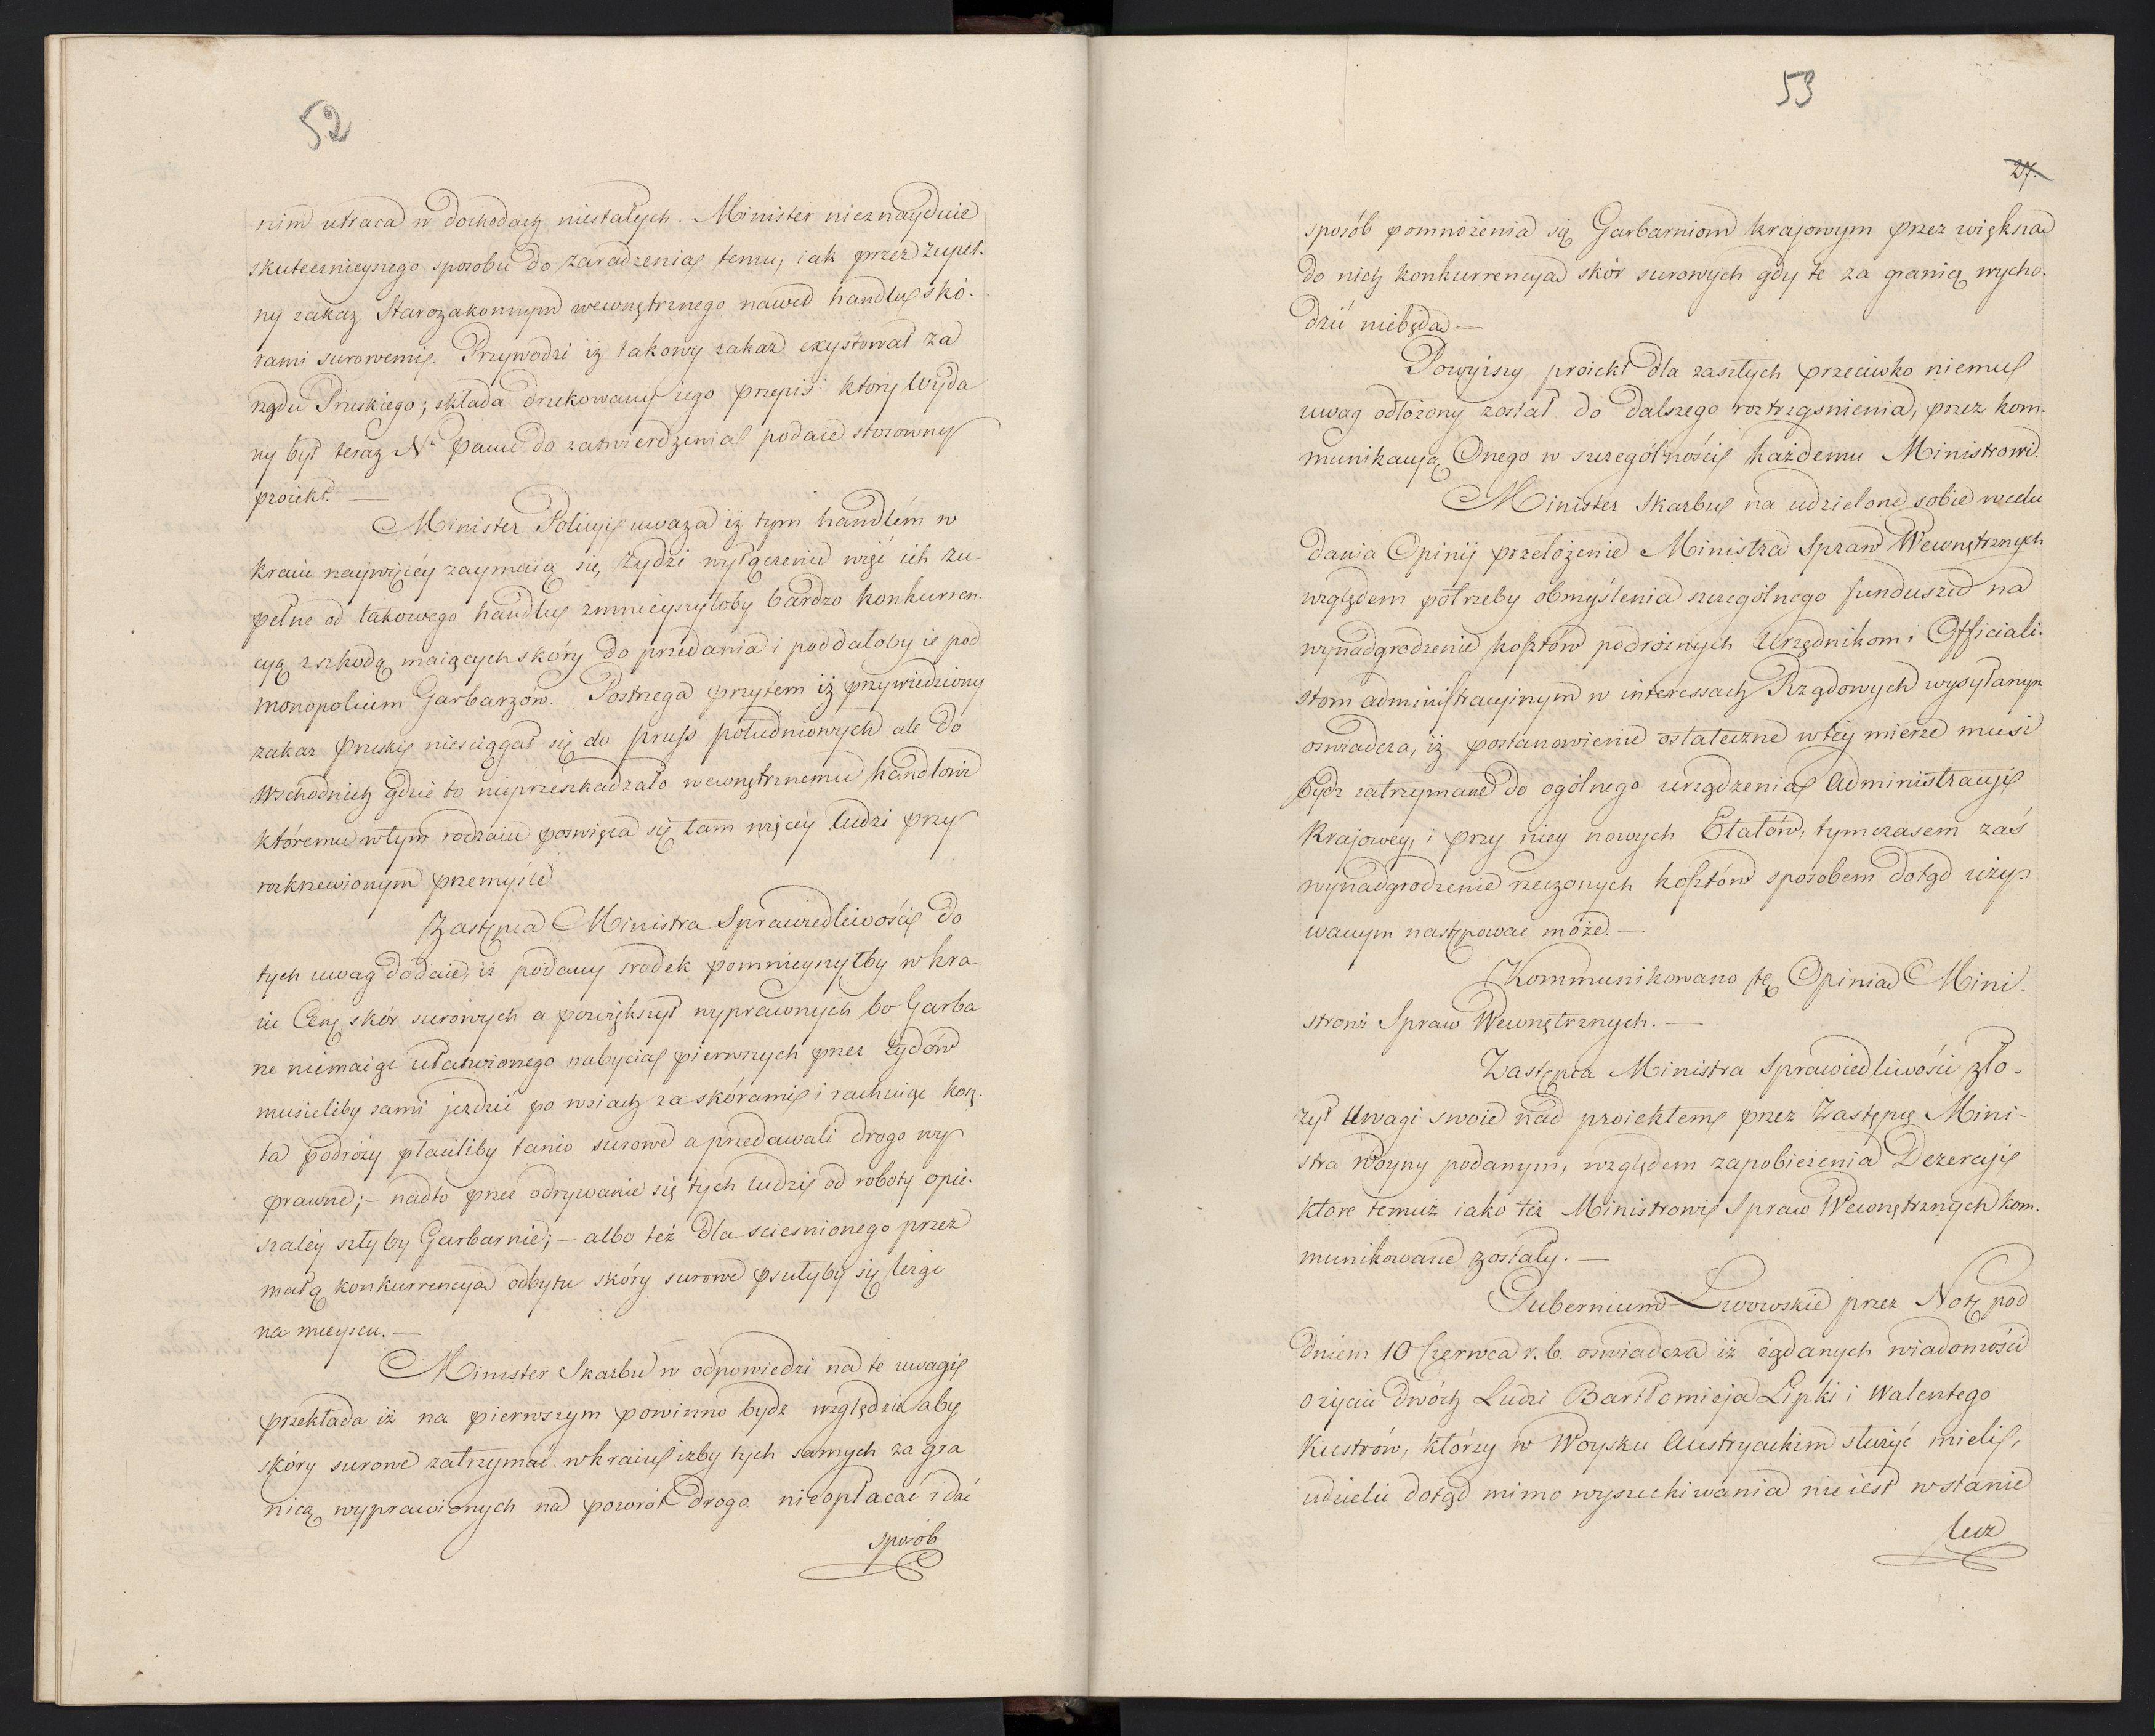 52
nim utraca w dochodach niestałych. Minister nieznayduie
skutecznieyszego sposobu do zaradzenia temu, iak przez zupeł-
ny zakaz Starozakonnym wewnętrznego nawet handlu skó-
rami surowemi. Przywodzi iż takowy zakaz exystował za
rządu Pruskiego; składa drukowany iego przepis który wyda
ny był teraz Nr. Panu do zatwierdzenia podaie stosowny
proiekt. —
Minister Policyi uważa iż tym handlem w
kraiu naywięcéy zaymuią się Żydzi wyłączenie więc ich zu-
pełne od takowego handlu zmnieyszyłoby bardzo konkurren-
cyą z szkodą maiących skóry do przedania i poddałoby ie pod
monopolium Garbarzów. Postrzega przytem iż przywiedziony
zakaz pruski nieściągał się do pruss południowych ale do
wschodnich gdzie to nieprzeszkadzało wewnętrznemu handlowi
któremu w tym rodzaiu poswięca się tam więcey ludzi przy
rozkrzewionym przemyśle
Zastępca Ministra Sprawiedliwości do
tych uwag dodaie, iż podany srodek pomnieyszyłby w kra
iu Cenę skór surowych a powiększył wyprawnych bo Garba
rze niemaiąc ułatwionego nabycia pierwszych przez żydów
musieliby sami jezdzić po wsiach za skórami i rachuiąc kosz-
ta podróży płaciliby tanio surowe a przedawali drogo wy
prawne; – nadto przez odrywanie się tych ludzi od roboty opie-
szaléy szłyby Garbarnie; – albo też dla scieśnionego przez
małą konkurrencyą odbytu skóry surowe psułyby się leżąc
na mieyscu. —
Minister Skarbu w odpowiedzi na te uwagi
przekłada iż na pierwszym powinno bydz względzie aby
skóry surowe zatrzymać w kraiu iżby tych samych za gra
nicą wyprawionych na powrót drogo nieopłacać i dać
sposób
53
27.
sposób pomnożenia się Garbarniom krajowym przez większą
do nich konkurrencyą skór surowych gdy te za granicę wycho-
dzić niebędą —
Powyższy proiekt dla zaszłych przeciwko niemu
uwag odłożony został do dalszego roztrząsnienia, przez kom-
munikacyą Onego w szczególności każdemu Ministrowi.
Minister Skarbu na udzielone sobie w celu
dania Opinii przełożenie Ministra Spraw Wewnętrznych
względem potrzeby obmyślenia szczególnego funduszu na
wynadgrodzenie kosztów podróżnych Urzędnikom i Officiali-
stom administracyinym w interessach Rządowych wysyłanym
oswiadcza, iż postanowienie ostateczne w téy mierze musi
bydz zatrzymane do ogólnego urządzenia Administracyi
Krajowéy, i przy niey nowych Etatów, tymczasem zaś
wynadgrodzenie rzeczonych kosztów sposobem dotąd uży-
wanym następować może. —
Kommunikowano tę Opinią Mini-
strowi Spraw Wewnętrznych. —
Zastępca Ministra Sprawiedliwości zło-
żył Uwagi swoie nad proiektem przez Zastępcę Mini-
stra Woyny podanym, względem zapobieżenia Dezercyi
które temuż iako też Ministrowi Spraw Wewnętrznych kom-
munikowane zostały. —
Gubernium Lwowskie przez Notę pod
dniem 10 Czerwca r. b. oswiadcza iż żądanych wiadomości
o życiu dwóch Ludzi Bartłomieja Lipki i Walentego
Kustrów, którzy w Woysku Austryackim służyć mieli,
udzielić dotąd mimo wyszukiwania nie iest w stanie
lecz